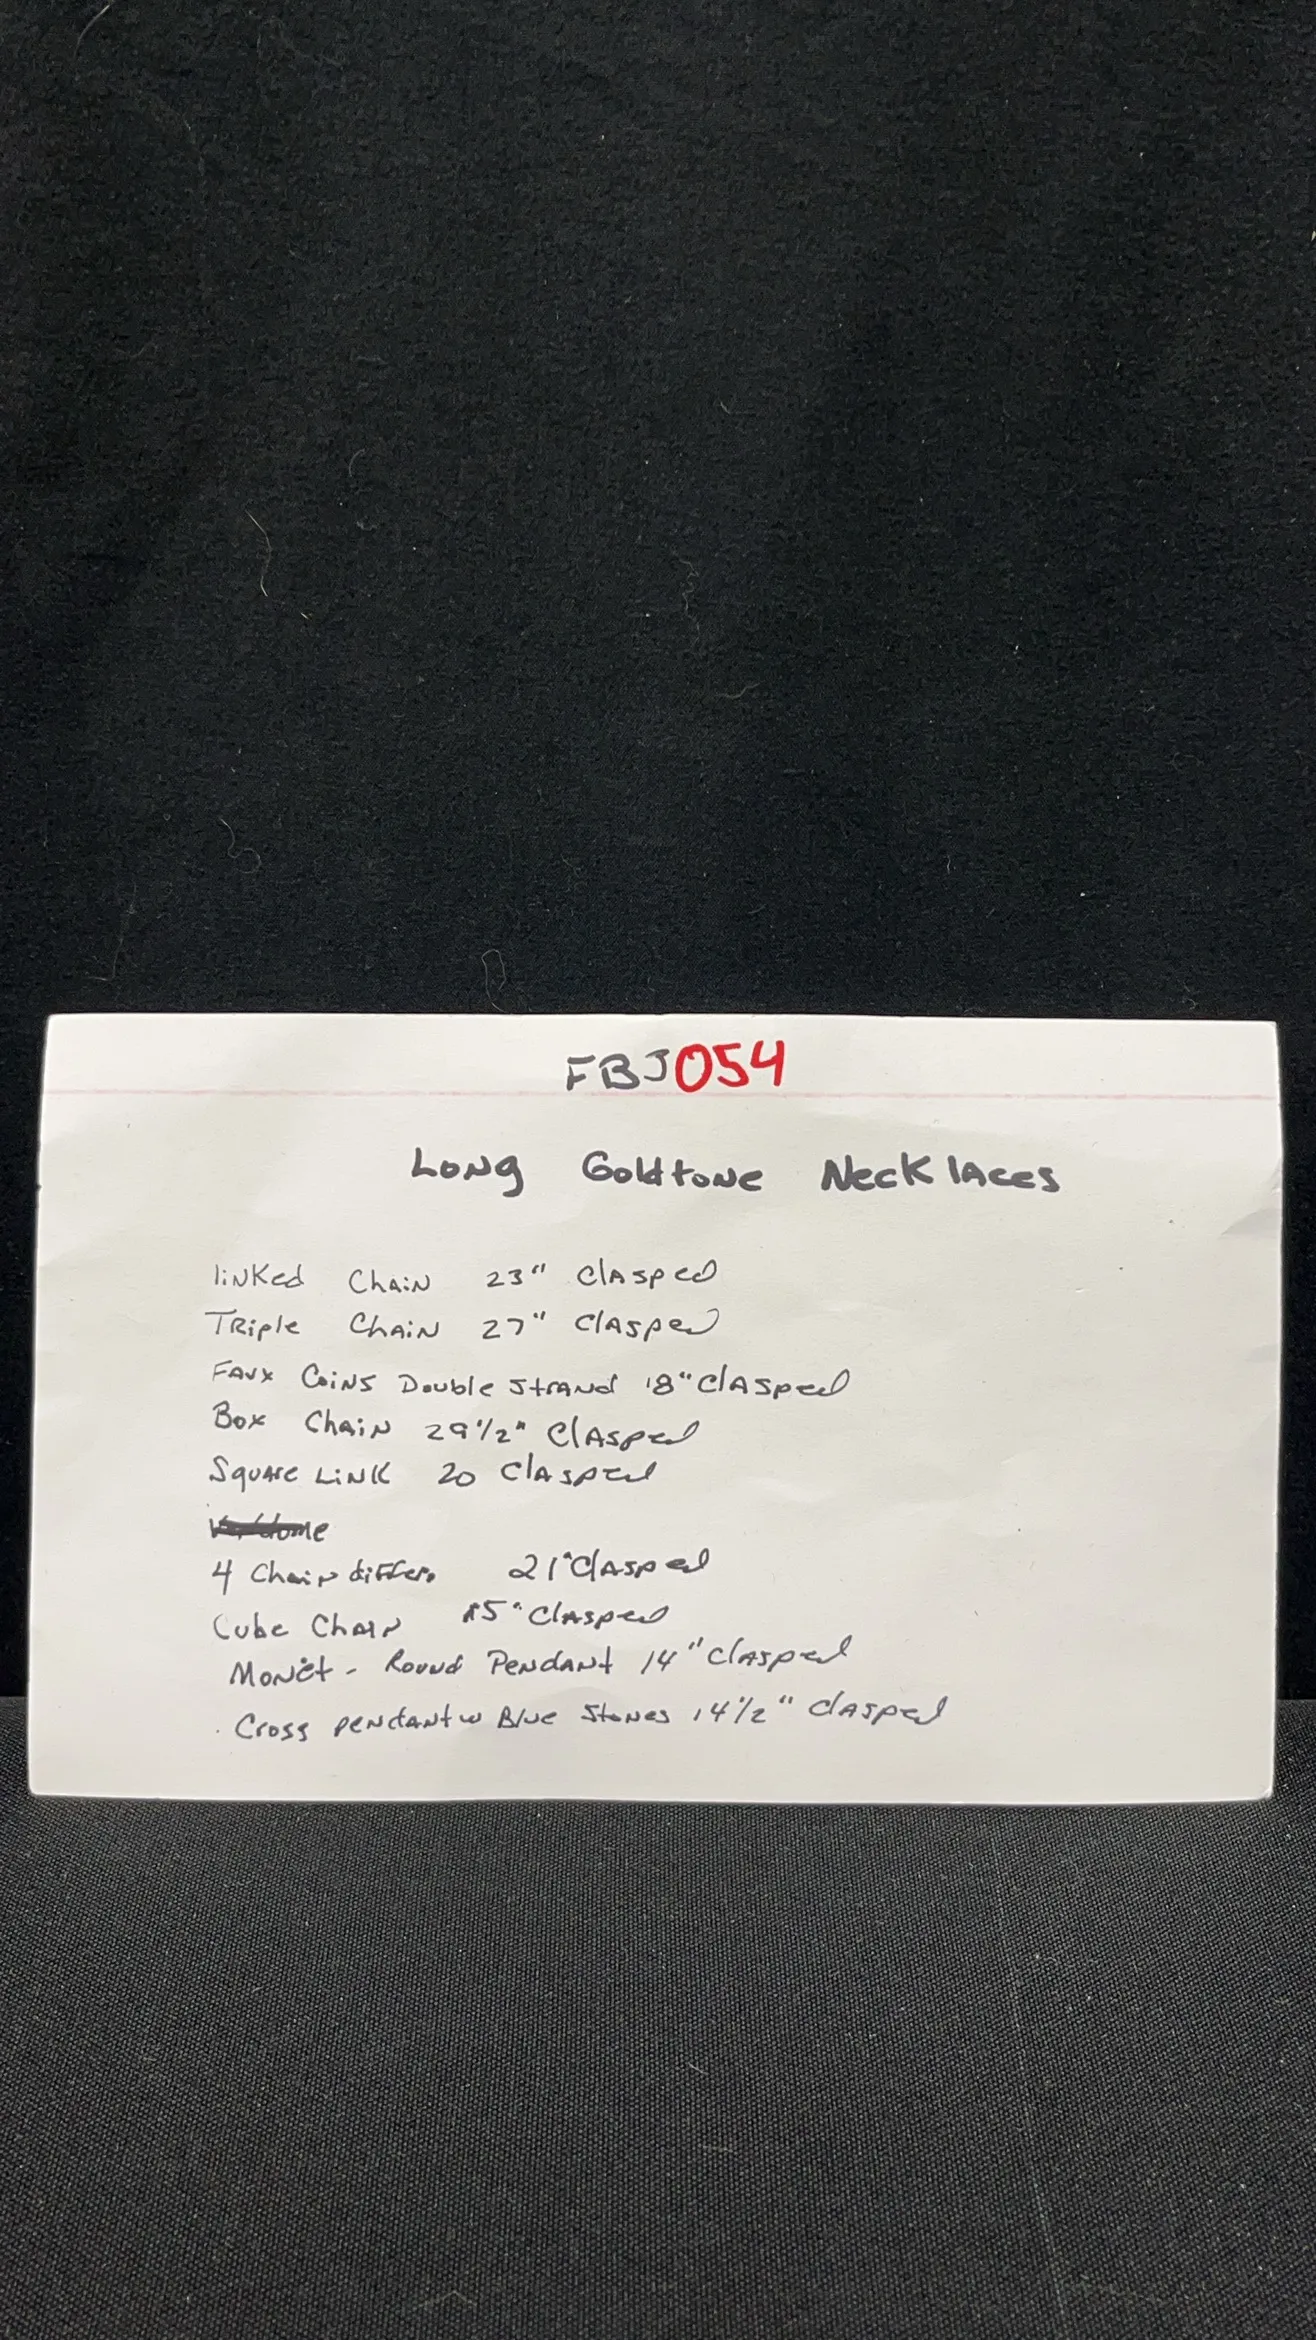 FBJ054
Long Goldtone Necklaces
linked Chain 23" Clasped
Triple Chain 27" Clasped
Faux Coins Double Strand 18" Clasped
Box Chain 29 1/2" Clasped
Square Link 20 Clasped
4 Chain differ. 21" Clasped
Cube Chain 15" Clasped
Monet - Round Pendant 14" Clasped
Cross pendant w Blue Stones 14 1/2" Clasped